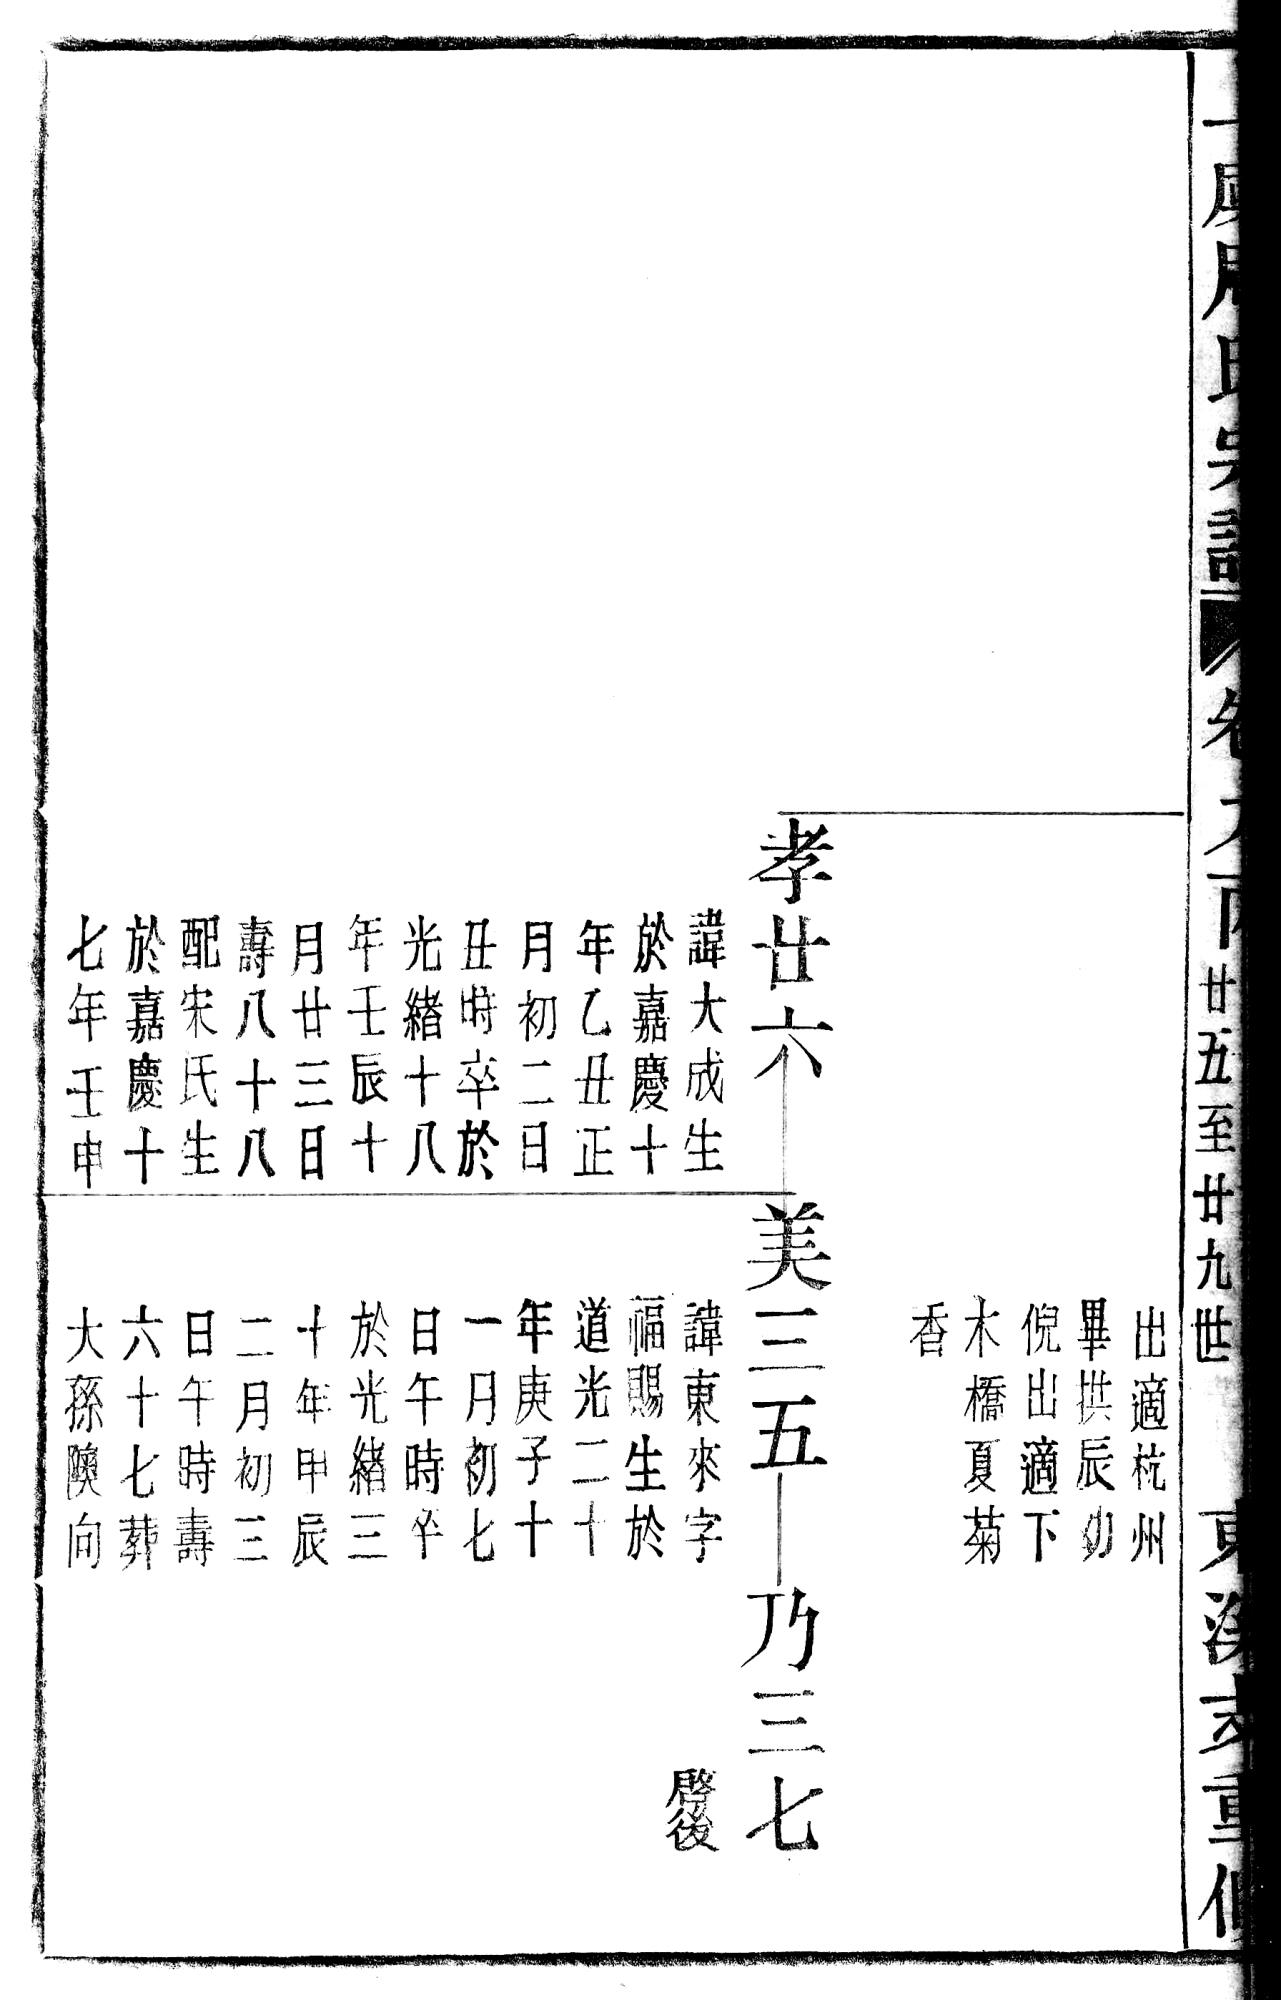 周氏宗譜
卷
廿五至廿九世
重修
出適杭州
畢拱辰幼
倪出適下
木橋夏菊
香
孝廿六
諱大成生
於嘉慶十
年乙丑正
月初二日
丑時卒於
光緒十八
年壬辰十
月廿三日
壽八十八
配宋氏生
於嘉慶十
七年壬申
美三五
諱東來字
福賜生於
道光二十
年庚子十
一月初七
日午時卒
於光緒三
十年甲辰
二月初三
日午時壽
六十七葬
大孫隩向
乃三七
啓後